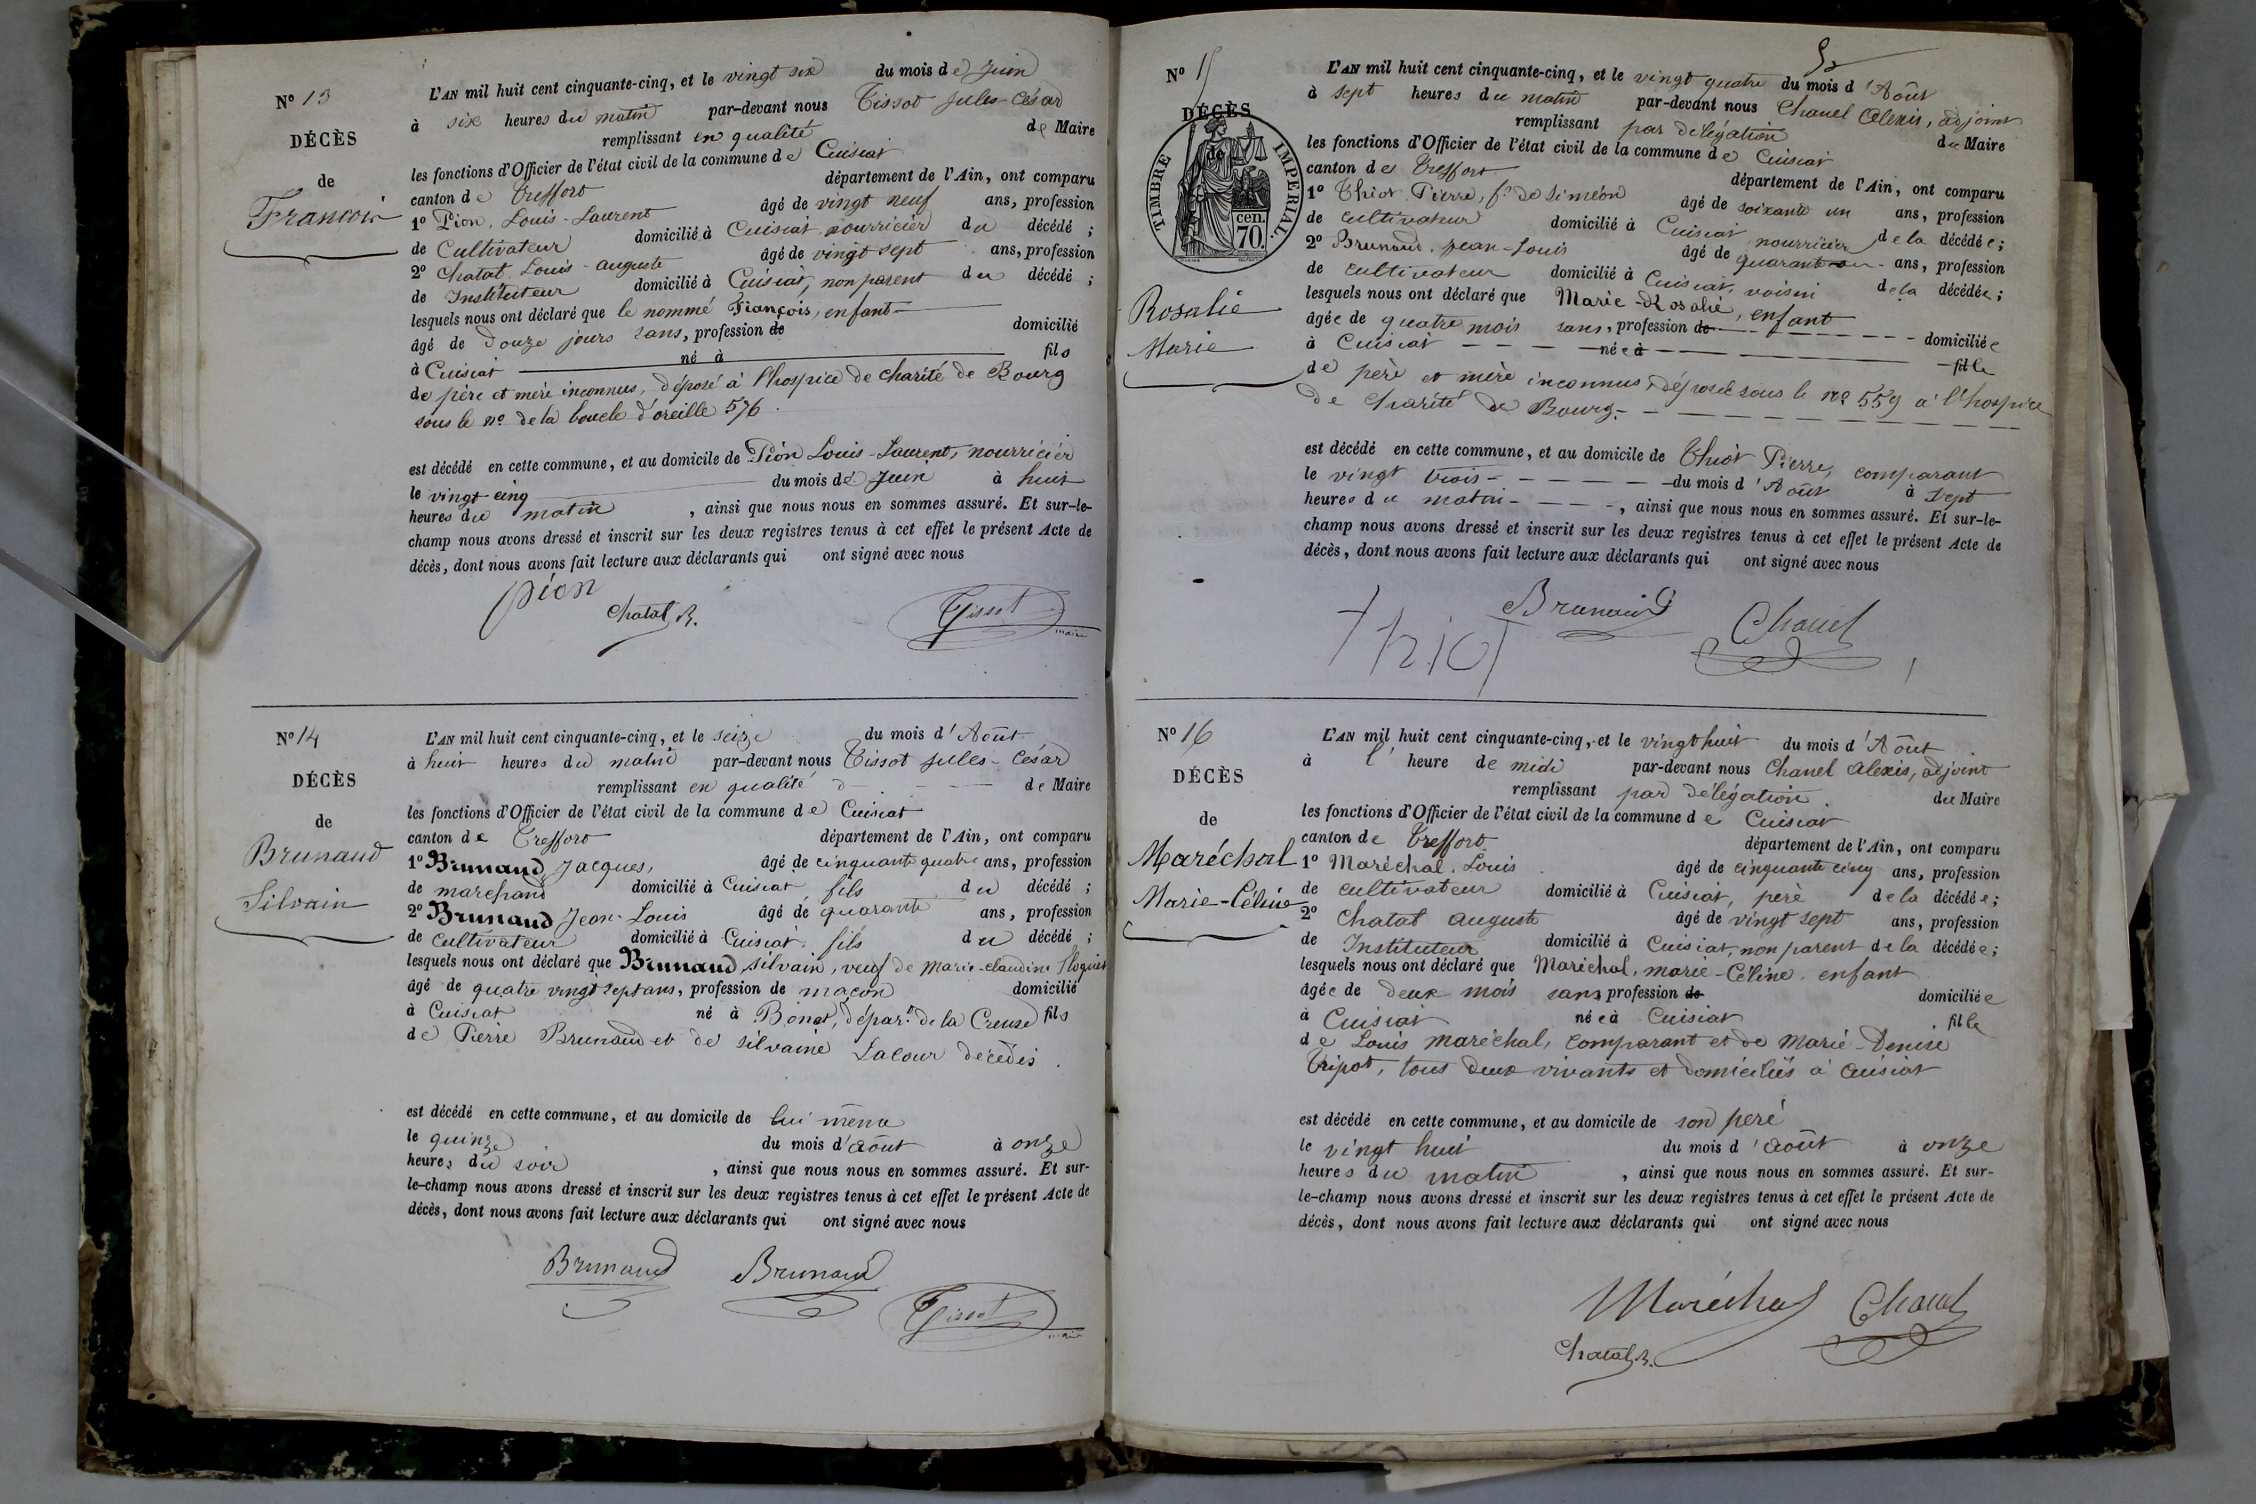 N° 13
DÉCÈS
de
François
L'AN mil huit cent cinquante-cinq, et le vingt six du mois de Juin
à six heures du matin par-devant nous Tissot Jules-César
remplissant en qualité de Maire
les fonctions d'Officier de l'état civil de la commune de Cuisiat
canton de Treffort département de l'Ain, ont comparu
1° Pion, Louis-Laurent âgé de vingt neuf ans, profession
de Cultivateur domicilié à Cuisiat, nourricier du décédé ;
2° Chatat Louis-auguste âgé de vingt sept ans, profession
de Instituteur domicilié à Cuisiat, non parent du décédé ;
lesquels nous ont déclaré que le nommé François, enfant
âgé de Douze jours sans, profession de domicilié
à Cuisiat né à fils
de père et mère inconnus, déposé à l'hospice de charité de Bourg
sous le n° de la boucle d'oreille 576.
est décédé en cette commune, et au domicile de Pion Louis-Laurent, nourricier
le vingt cinq du mois de Juin à huit
heures du matin , ainsi que nous nous en sommes assuré. Et sur-le-
champ nous avons dressé et inscrit sur les deux registres tenus à cet effet le présent Acte de
décès, dont nous avons fait lecture aux déclarants qui ont signé avec nous
pion
Chatat
Tissot
maire
N° 14
DÉCÈS
de
Brunaud
Silvain
L'AN mil huit cent cinquante-cinq, et le seize du mois d'Août
à huit heures du matin par-devant nous Tissot Jules-César
remplissant en qualité de Maire
les fonctions d'Officier de l'état civil de la commune de Cuisiat
canton de Treffort département de l'Ain, ont comparu
1° Brunaud Jacques, âgé de cinquante quatre ans, profession
de marchand domicilié à Cuisiat fils du décédé ;
2° Brunaud Jean-Louis âgé de quarante ans, profession
de Cultivateur domicilié à Cuisiat, fils du décédé ;
lesquels nous ont déclaré que Brunaud, silvain, veuf de Marie-claudine
âgé de quatre vingt sept ans, profession de maçon domicilié
à Cuisiat né à Bonat, départ. de la Creuse fils
de Pierre Brunaud et de silvaine Lacour décédés
est décédé en cette commune, et au domicile de lui même
le quinze du mois d'août à onze
heures du soir , ainsi que nous nous en sommes assuré. Et sur-
le-champ nous avons dressé et inscrit sur les deux registres tenus à cet effet le présent Acte de
décès, dont nous avons fait lecture aux déclarants qui ont signé avec nous
Brunaud
Brunaud
Tissot
maire
N° 15
DÉCÈS
de
TIMBRE IMPÉRIAL.
cen.
70.
Rosalie
Marie
L'AN mil huit cent cinquante-cinq, et le vingt quatre du mois d'Août
à sept heures du matin par-devant nous Chanel Alexis, adjoint
remplissant par délégation du Maire
les fonctions d'Officier de l'état civil de la commune de Cuisiat
canton de Treffort département de l'Ain, ont comparu
1° Thiot Pierre, fs de Siméon âgé de soixante un ans, profession
de cultivateur domicilié à Cuisiat nourricier de la décédée ;
2° Brunaud, Jean-Louis âgé de quarante ans, profession
de cultivateur domicilié à Cuisiat, voisin de la décédée ;
lesquels nous ont déclaré que Marie-Rosalie, enfant
âgée de quatre mois sans, profession de domiciliée
à Cuisiat née à fille
de père et mère inconnus, déposée sous le n° 559 à l'hospice
de Charité de Bourg.
est décédé en cette commune, et au domicile de Thiot Pierre, comparant
le vingt trois du mois d'Août à sept
heures du matin , ainsi que nous nous en sommes assuré. Et sur-le-
champ nous avons dressé et inscrit sur les deux registres tenus à cet effet le présent Acte de
décès, dont nous avons fait lecture aux déclarants qui ont signé avec nous
Thiot
Brunaud
Chanel
N° 16
DÉCÈS
de
Maréchal
Marie-Céline
L'AN mil huit cent cinquante-cinq, et le vingt huit du mois d'Août
à l' heure de midi par-devant nous Chanel Alexis, adjoint
remplissant par délégation du Maire
les fonctions d'Officier de l'état civil de la commune de Cuisiat
canton de Treffort département de l'Ain, ont comparu
1° Maréchal, Louis âgé de cinquante cinq ans, profession
de cultivateur domicilié à Cuisiat, père de la décédée ;
2° Chatat auguste âgé de vingt sept ans, profession
de Instituteur domicilié à Cuisiat, non parent de la décédée ;
lesquels nous ont déclaré que Maréchal, marie-Céline enfant
âgée de deux mois sans profession de domiciliée
à Cuisiat née à Cuisiat fille
de Louis maréchal, comparant et de Marie-Denise
Tripot, tous deux vivants et domiciliés à Cuisiat
est décédé en cette commune, et au domicile de son père
le vingt huit du mois d'août à onze
heures du matin , ainsi que nous nous en sommes assuré. Et sur-
le-champ nous avons dressé et inscrit sur les deux registres tenus à cet effet le présent Acte de
décès, dont nous avons fait lecture aux déclarants qui ont signé avec nous
Maréchal
Chanel
Chatat